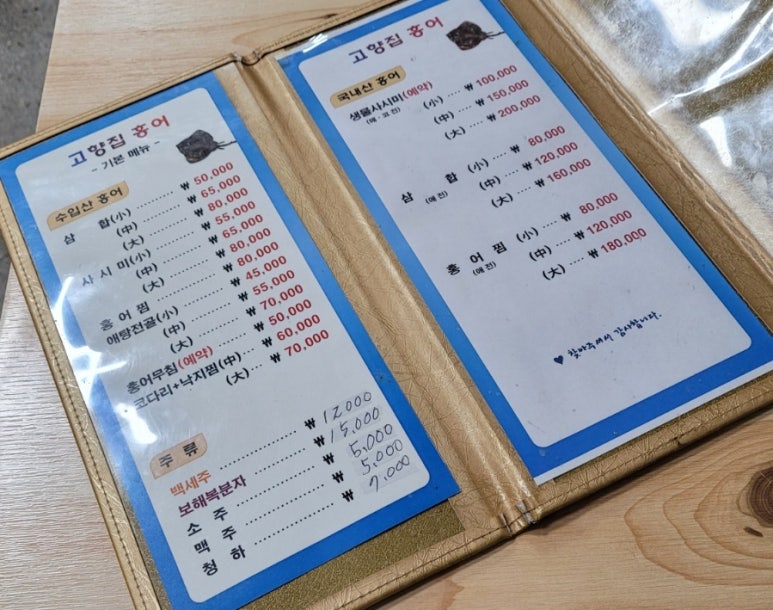 고향집 홍어
- 기본 메뉴 -
수입산 홍어
삼 합(小) ₩ 50,000
(中) ₩ 65,000
(大) ₩ 80,000
사 시 미(小) ₩ 55,000
(中) ₩ 65,000
(大) ₩ 80,000
홍 어 찜 ₩ 80,000
애탕전골(小) ₩ 45,000
(中) ₩ 55,000
(大) ₩ 70,000
홍어무침(예약) ₩ 50,000
코다리+낙지찜(中) ₩ 60,000
(大) ₩ 70,000
주 류
백세주 ₩ 12000
보해복분자 ₩ 15,000
소 주 ₩ 5,000
맥 주 ₩ 5,000
청 하 ₩ 7,000
고향집 홍어
국내산 홍어
생물사시미(예약) (小) ₩ 100,000
(애·코 전) (中) ₩ 150,000
(大) ₩ 200,000
삼 합 (小) ₩ 80,000
(애전) (中) ₩ 120,000
(大) ₩ 160,000
홍 어 찜 (小) ₩ 80,000
(애전) (中) ₩ 120,000
(大) ₩ 180,000
♥ 찾아주셔서 감사합니다.